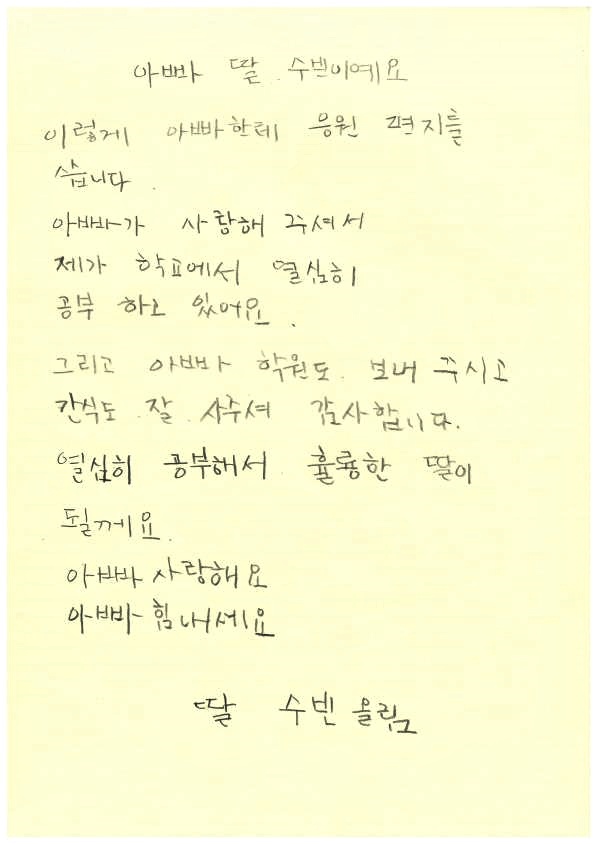 아빠 딸 수빈이예요
이렇게 아빠한테 응원 편지를
씁니다.
아빠가 사랑해 주셔서
제가 학교에서 열심히
공부 하고 있어요.
그리고 아빠 학원도 보내 주시고
간식도 잘 사주셔 감사합니다.
열심히 공부해서 휼룡한 딸이
될께요.
아빠 사랑해요
아빠 힘내세요
딸 수빈 올림